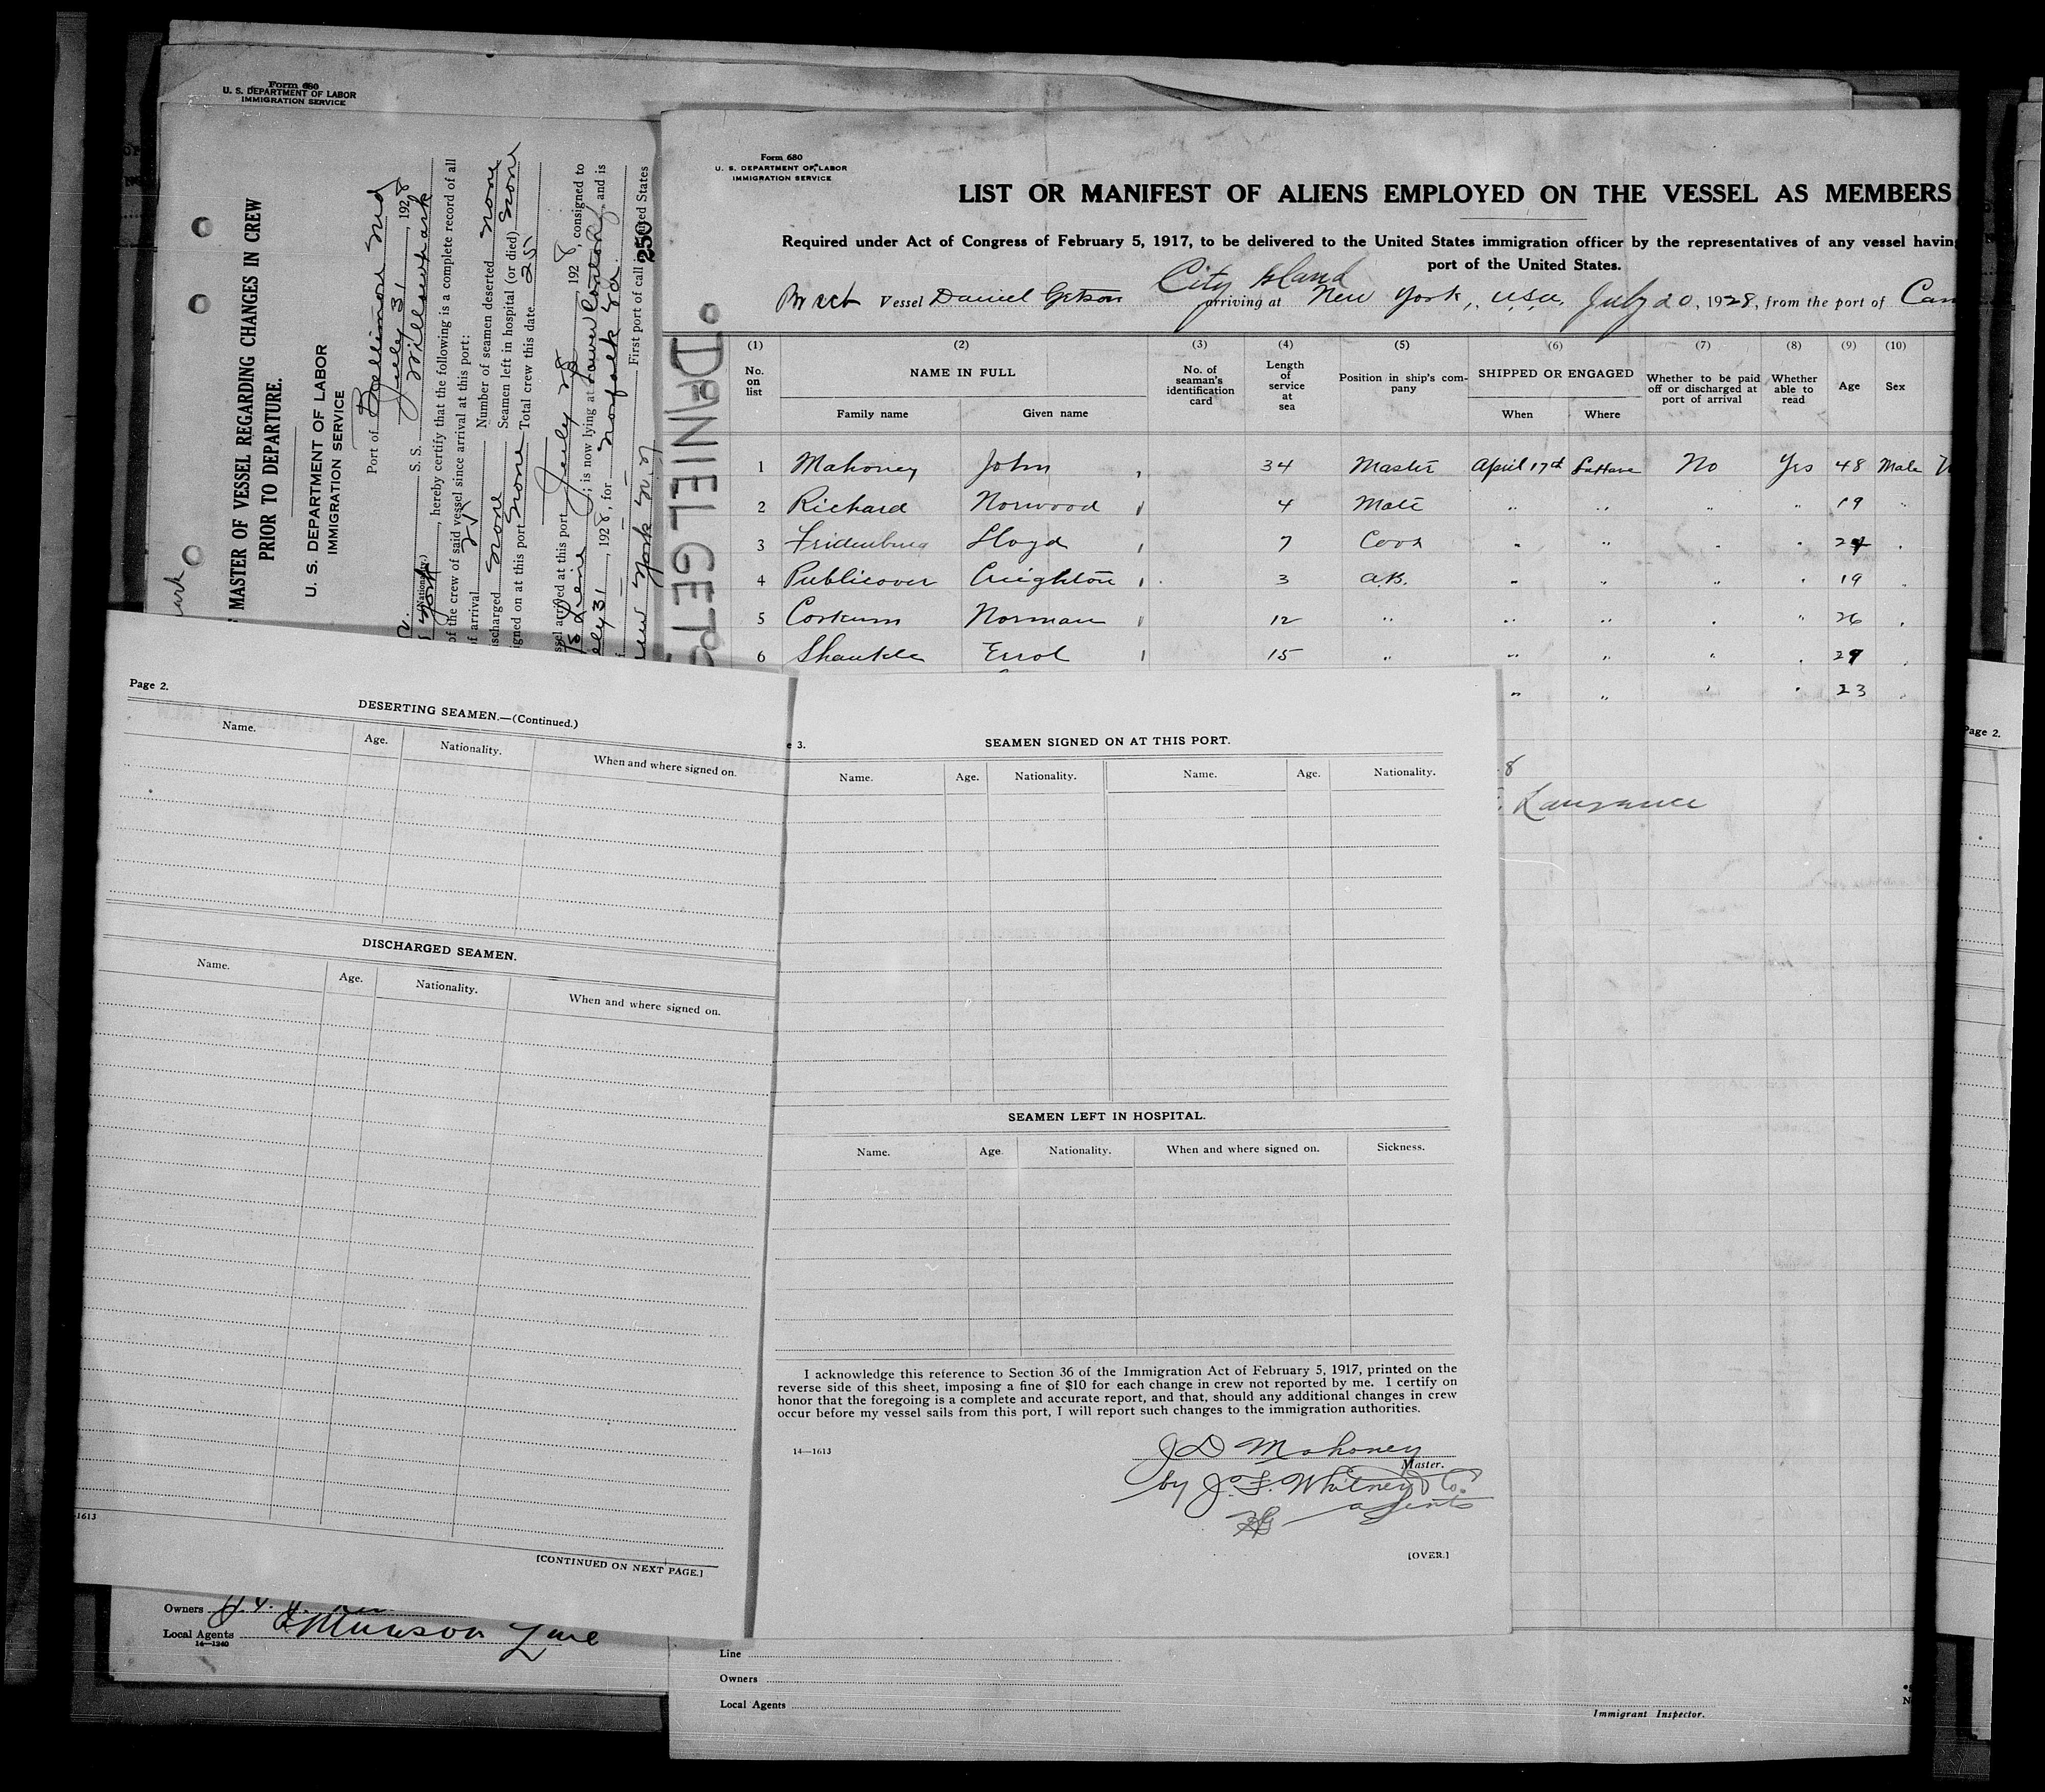 Form 680
U. S. DEPARTMENT OF LABOR
IMMIGRATION SERVICE
MASTER OF VESSEL REGARDING CHANGES IN CREW
PRIOR TO DEPARTURE.
U. S. DEPARTMENT OF LABOR
IMMIGRATION SERVICE
Port of
July 31, 1928
S. S. Millswhark
(Nationality.)
, hereby certify that the following is a complete record of all
of the crew of said vessel since arrival at this port:
of arrival 25 Number of seamen deserted none
discharged none Seamen left in hospital (or died) none
signed on at this port none Total crew this date 25
vessel arrived at this port July 28, 1928, consigned to
; is now lying at and is
July 31, 1928, for Norfolk Va.
First port of call in United States
New York N.Y.
250
Form 680
U. S. DEPARTMENT OF LABOR
IMMIGRATION SERVICE
LIST OR MANIFEST OF ALIENS EMPLOYED ON THE VESSEL AS MEMBERS
Required under Act of Congress of February 5, 1917, to be delivered to the United States immigration officer by the representatives of any vessel having
port of the United States.
City Island
Vessel Daniel Getson arriving at New York, U.S.A. July 20, 1928, from the port of Cam
DANIEL GETS
(1) (2) (3) (4) (5) (6) (7) (8) (9) (10)
No. on list
NAME IN FULL
Family name Given name
No. of seaman's identification card
Length of service at sea
Position in ship's company
SHIPPED OR ENGAGED
When Where
Whether to be paid off or discharged at port of arrival
Whether able to read
Age
Sex
1 Mahoney John 34 Master April 17th LaHave No Yes 48 Male
2 Richard Norwood 4 Mate " " " " 19 "
3 Fridenburg Lloyd 7 Cook " " " "
4 Publicover Creighton 3 A.B. " " " " 19 "
5 Corkum Norman 12 " " " " " 26 "
6 Shankle Errol 15 " " " " " 29 "
" " " " 23 "
8
Lawrance
Page 2.
DESERTING SEAMEN.—(Continued.)
Name. Age. Nationality. When and where signed on.
DISCHARGED SEAMEN.
Name. Age. Nationality. When and where signed on.
1613
[CONTINUED ON NEXT PAGE.]
e 3.
SEAMEN SIGNED ON AT THIS PORT.
Name. Age. Nationality. Name. Age. Nationality.
SEAMEN LEFT IN HOSPITAL.
Name. Age. Nationality. When and where signed on. Sickness.
I acknowledge this reference to Section 36 of the Immigration Act of February 5, 1917, printed on the
reverse side of this sheet, imposing a fine of $10 for each change in crew not reported by me. I certify on
honor that the foregoing is a complete and accurate report, and that, should any additional changes in crew
occur before my vessel sails from this port, I will report such changes to the immigration authorities.
14—1613
J D Mahoney
Master.
by J. F. Whitney & Co.
agents
[OVER.]
Owners
Local Agents Munson Line
14—1240
Line
Owners
Local Agents
Immigrant Inspector.
Page 2.